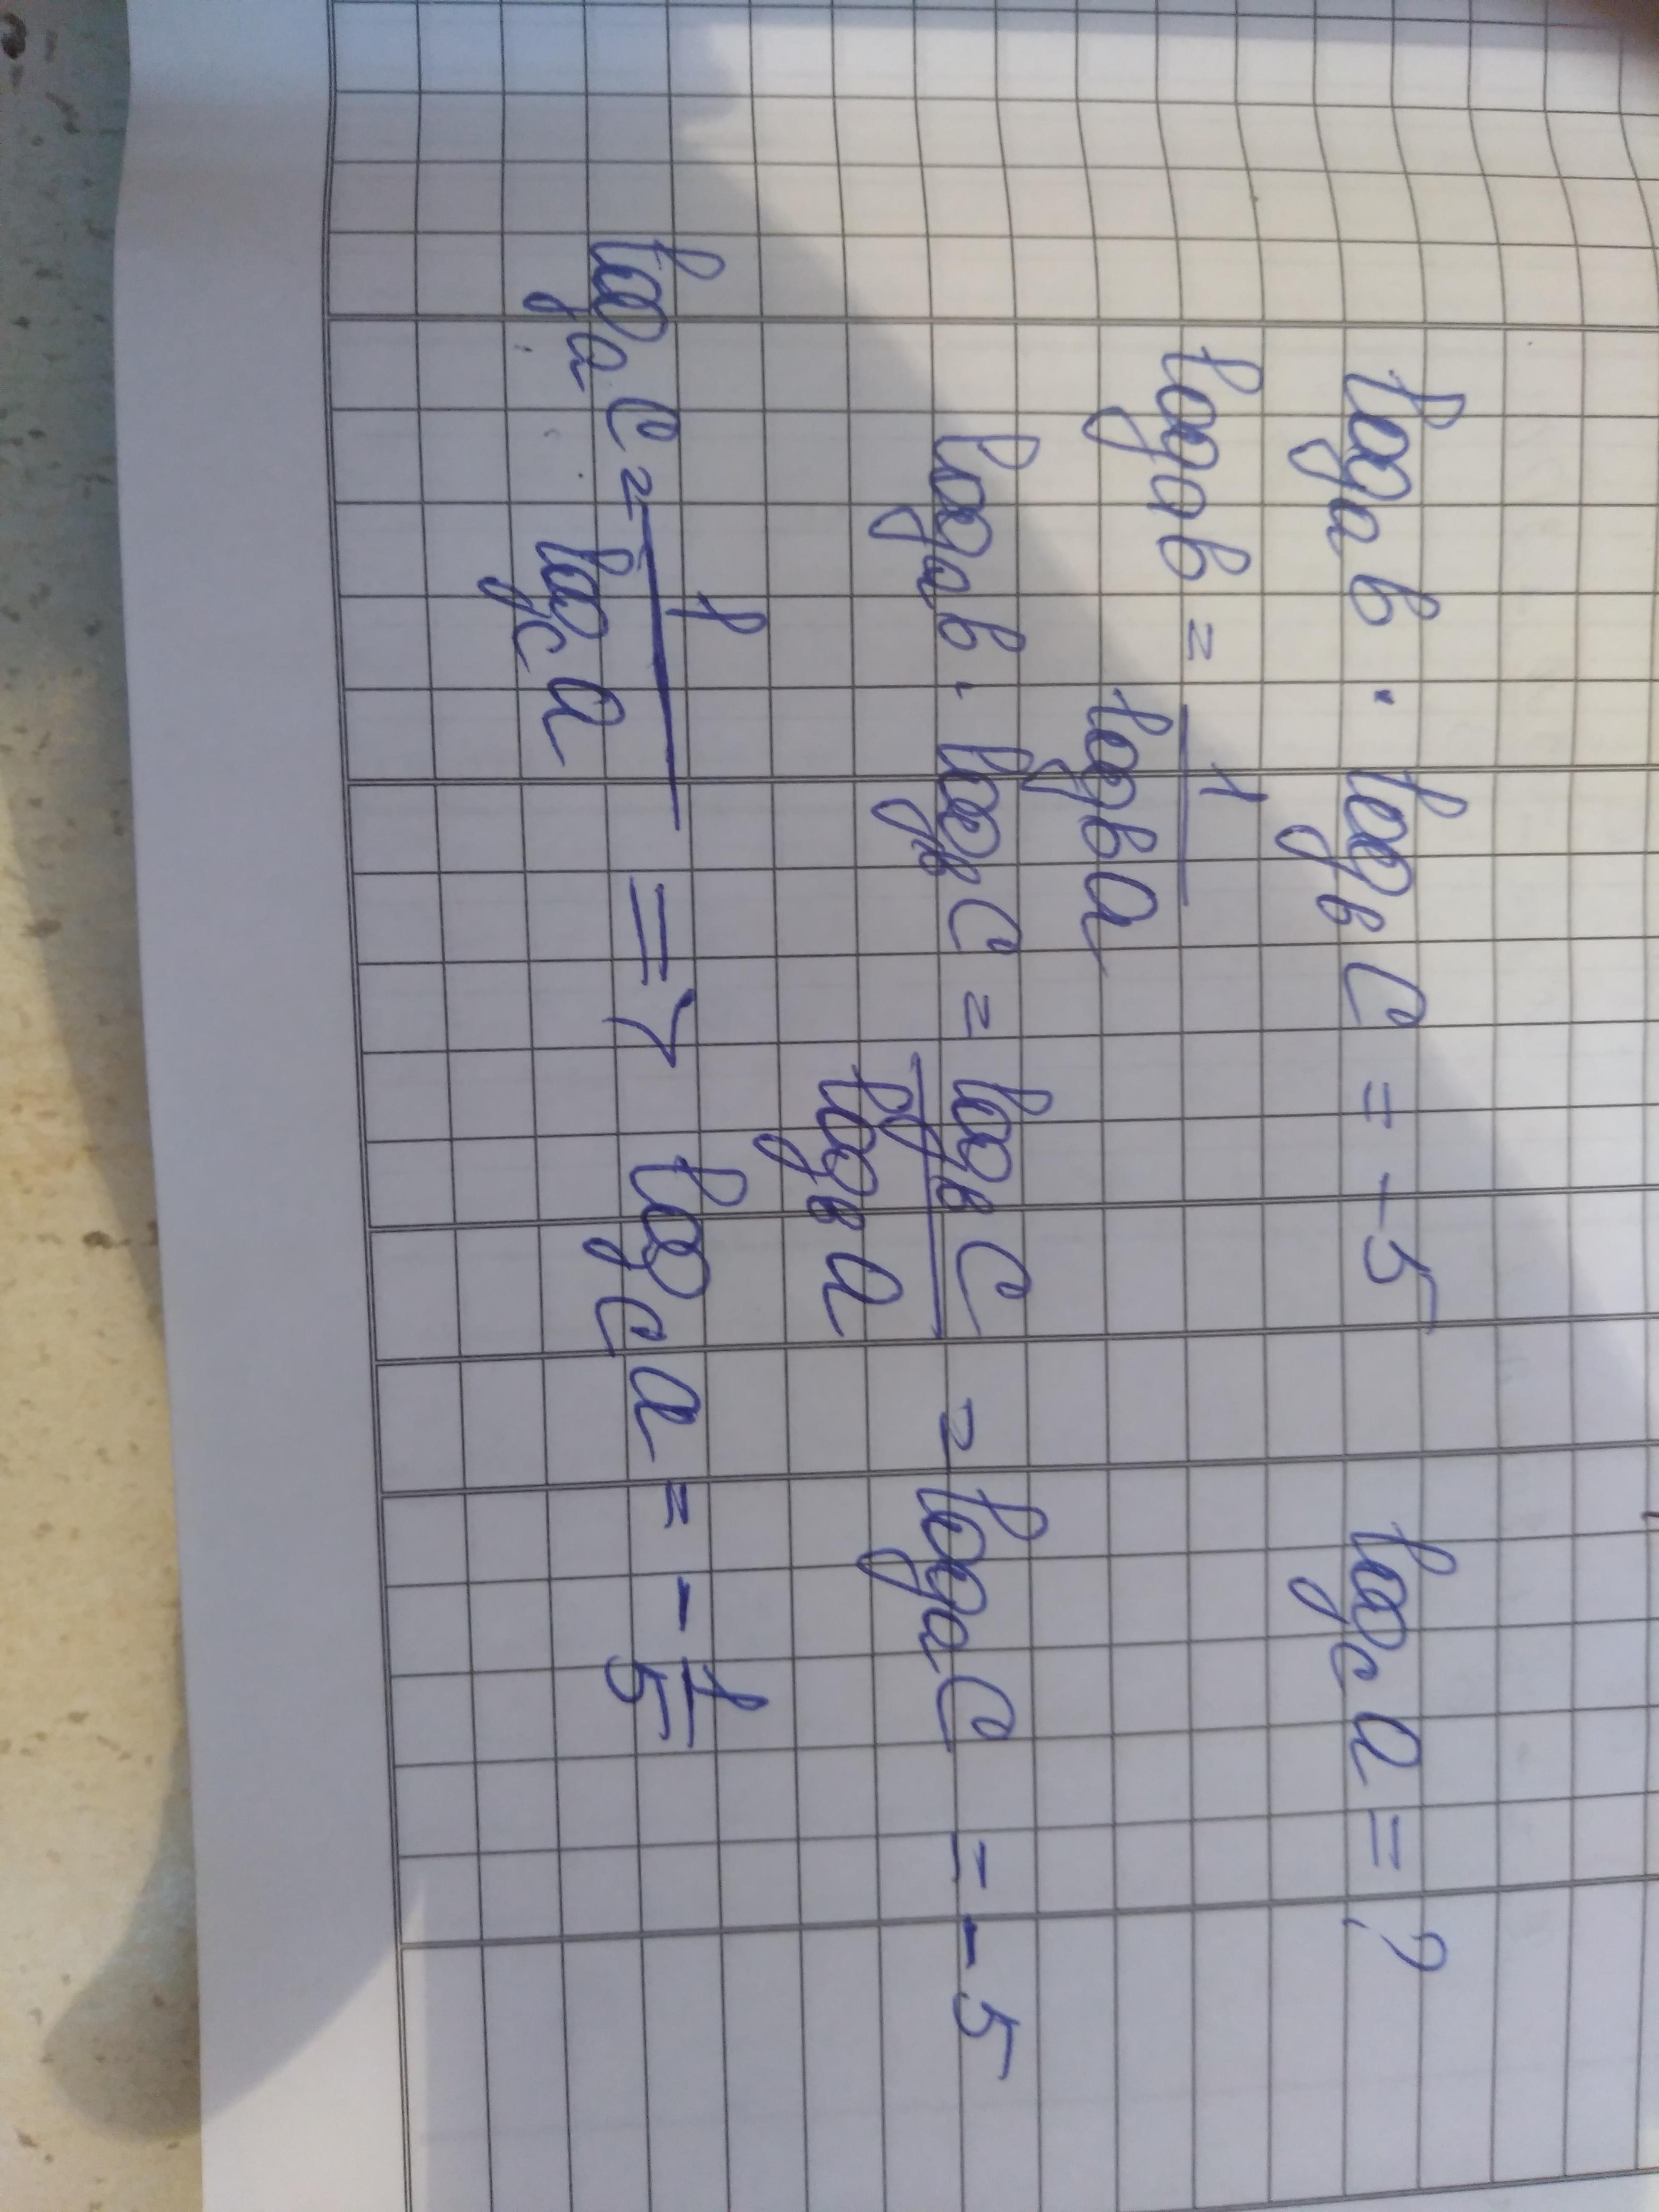 logₐb · log_b c = -5     log_c a = ?
logₐb = 1/log_b a
logₐb · log_b c = log_b c/log_b a = logₐc = -5
logₐc = 1/log_c a => log_c a = -1/5